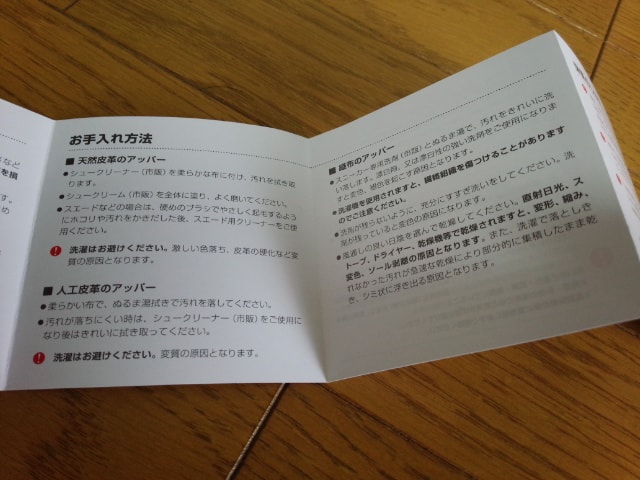 お手入れ方法
■ 天然皮革のアッパー
●シュークリーナー(市販)を柔らかな布に付け、汚れを拭き取
ります。
●シュークリーム(市販)を全体に塗り、よく磨いてください。
●スエードなどの場合は、硬めのブラシでやさしく起毛するよう
にホコリや汚れをかきだした後、スエード用クリーナーをご使
用ください。
! 洗濯はお避けください。激しい色落ち、皮革の硬化など変
質の原因となります。
■ 人工皮革のアッパー
●柔らかい布で、ぬるま湯拭きで汚れを落してください。
●汚れが落ちにくい時は、シュークリーナー(市販)をご使用に
なり後はきれいに拭き取ってください。
! 洗濯はお避けください。変質の原因となります。
■ 織布のアッパー
●スニーカー専用洗剤(市販)とぬるま湯で、汚れをきれいに洗
い流します。漂白剤、又は漂白性の強い洗剤をご使用になりま
すと変色、褪色を起こす原因となります。
●洗濯機を使用されますと、繊維組織を傷つけることがあります
のでご注意ください。
●洗剤が残らないように、充分にすすぎ洗いをしてください。洗
剤が残っていると変色の原因になります。
●風通しの良い日陰を選んで乾燥してください。直射日光、ス
トーブ、ドライヤー、乾燥機等で乾燥されますと、変形、縮み、
変色、ソール剥離の原因となります。また、洗濯で落としき
れなかった汚れが急速な乾燥により部分的に集積したまま乾
き、シミ状に浮き出る原因となります。